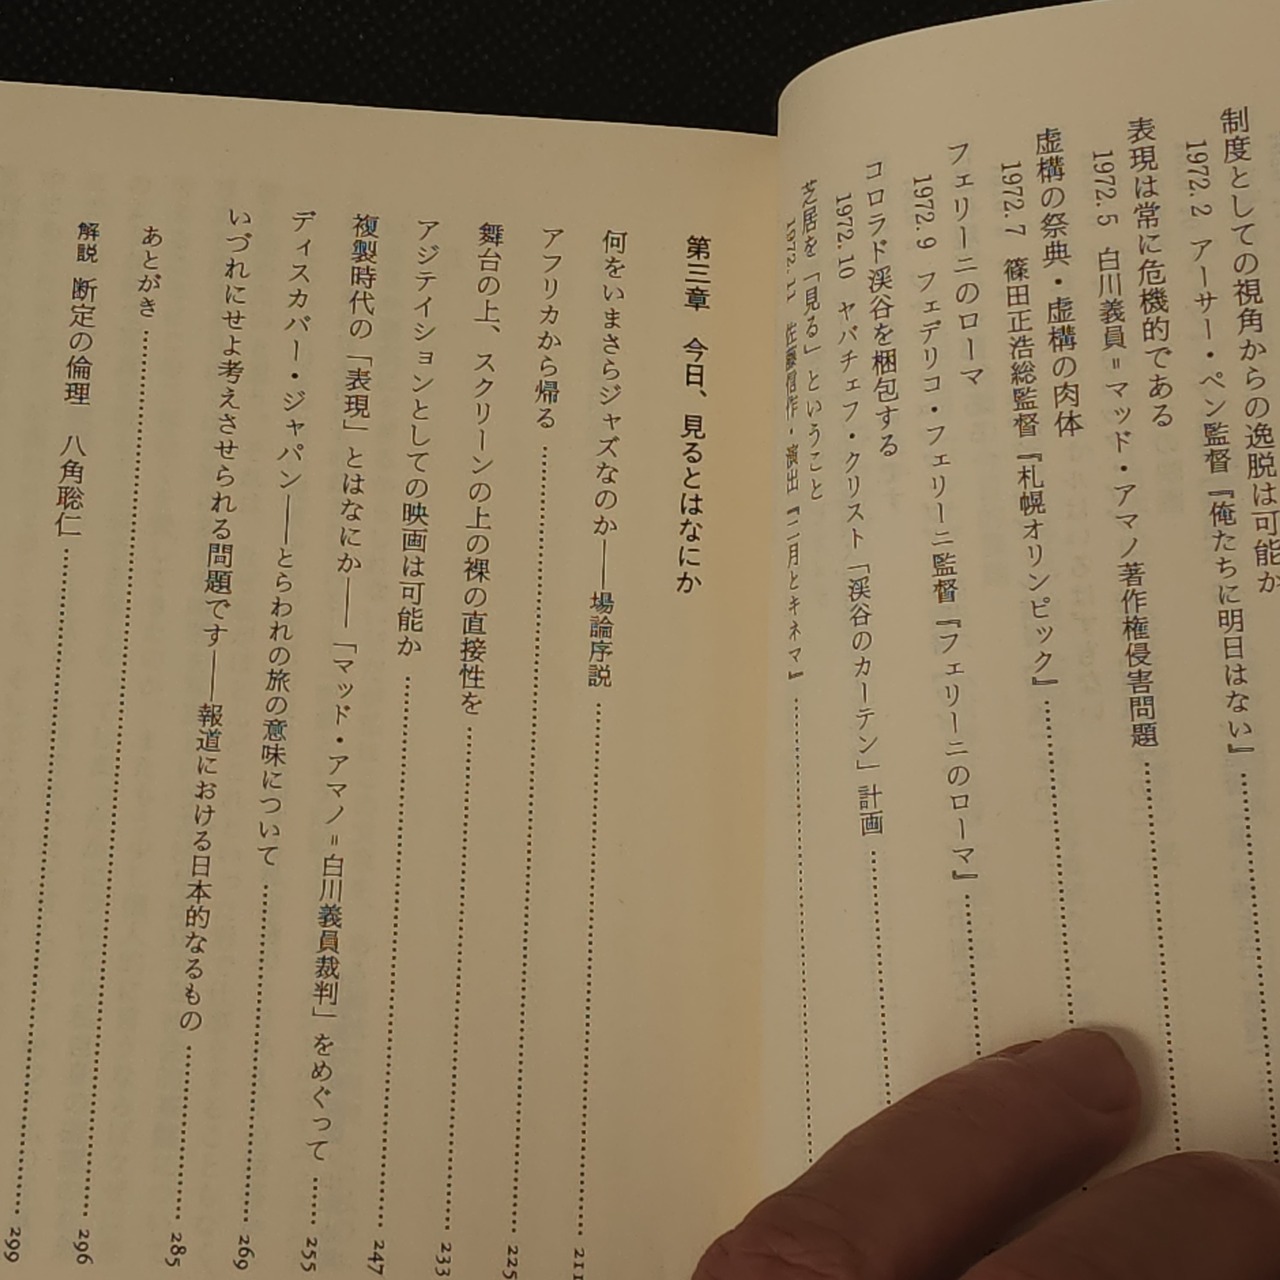 制度としての視角からの逸脱は可能か
1972. 2 アーサー・ペン監督『俺たちに明日はない』
表現は常に危機的である
1972. 5 白川義員＝マッド・アマノ著作権侵害問題
虚構の祭典・虚構の肉体
1972. 7 篠田正浩総監督『札幌オリンピック』
フェリーニのローマ
1972. 9 フェデリコ・フェリーニ監督『フェリーニのローマ』
コロラド渓谷を梱包する
1972. 10 ヤバチェフ・クリスト「渓谷のカーテン」計画
芝居を「見る」ということ
1972. 11 佐藤信作・演出『二月とキネマ』
第三章 今日、見るとはなにか
何をいまさらジャズなのか――場論序説 211
アフリカから帰る 225
舞台の上、スクリーンの上の裸の直接性を 233
アジテイションとしての映画は可能か 247
複製時代の「表現」とはなにか――「マッド・アマノ＝白川義員裁判」をめぐって 255
ディスカバー・ジャパン――とらわれの旅の意味について 269
いづれにせよ考えさせられる問題です――報道における日本的なるもの 285
あとがき 296
解説 断定の倫理 八角聡仁 299